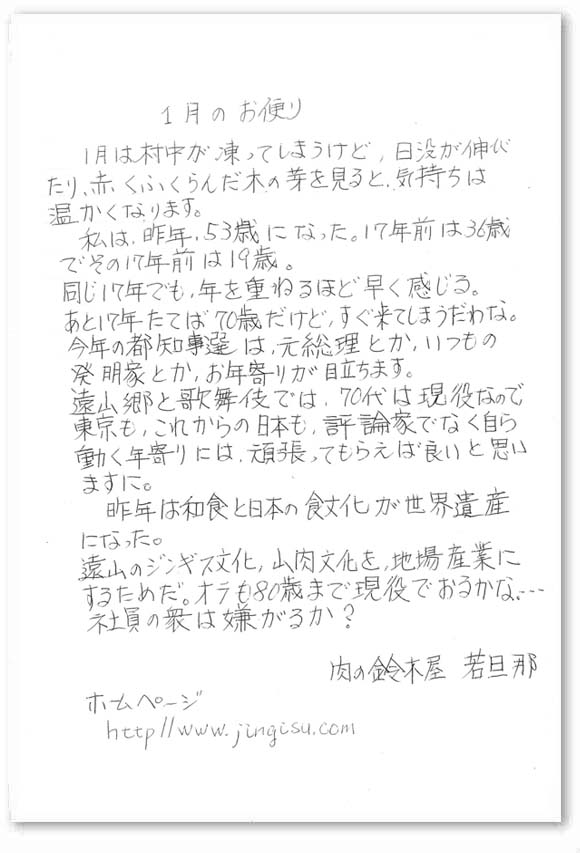 1月のお便り
1月は村中が凍ってしまうけど,日没が伸び
たり、赤くふくらんだ木の芽を見ると、気持ちは
温かくなります。
私は、昨年、53歳になった。17年前は36歳
でその17年前は19歳。
同じ17年でも、年を重ねるほど早く感じる。
あと17年たてば70歳だけど、すぐ来てしまうだわな。
今年の都知事選は、元総理とか、いつもの
発明家とか、お年寄りが目立ちます。
遠山郷と歌舞伎では、70代は現役なので
東京も、これからの日本も、評論家でなく自ら
動く年寄りには、頑張ってもらえば良いと思い
ますに。
昨年は和食と日本の食文化が世界遺産
になった。
遠山のジンギス文化,山肉文化を,地場産業に
するためだ。オラも80歳まで現役でおるかな、…
社員の衆は嫌がるか?
肉の鈴木屋 若旦那
ホームページ
http//www.jingisu.com